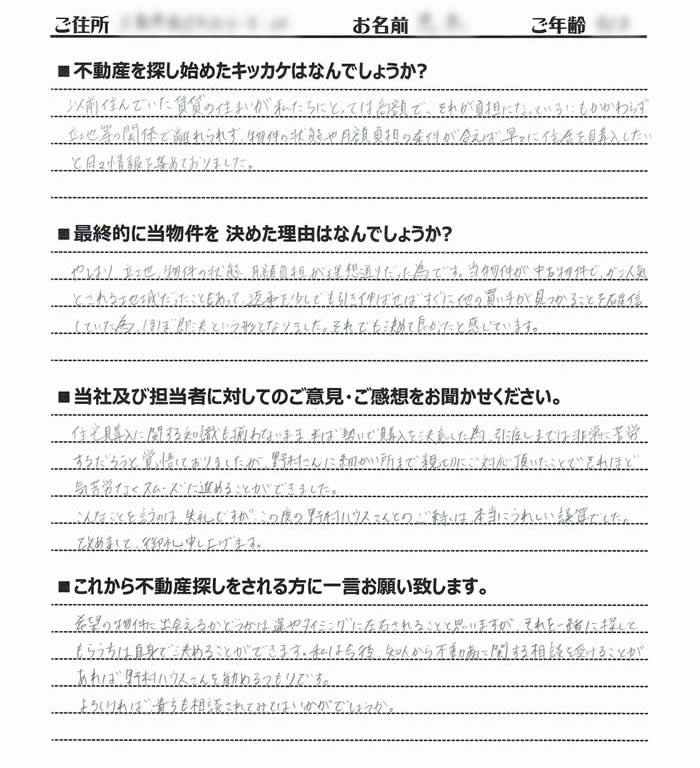 ご住所 お名前 ご年齢
■不動産を探し始めたキッカケはなんでしょうか?
以前住んでいた賃貸の住まいが私たちにとっては高額で、それが負担になっているにもかかわらず
立地等の関係で離れられず、物件の状態や月額負担の条件が合えば早々に住居を購入したい
と日々情報を集めておりました。
■最終的に当物件を 決めた理由はなんでしょうか?
やはり、立地、物件の状態、月額負担が理想通りだった為です。当物件が中古物件で、かつ人気
とされる地域だったこともあって、返事を少しでも引き伸ばせばすぐに他の買い手が見つかることを確信
していた為、ほぼ即決という形となりました。それでも決めて良かったと感じています。
■当社及び担当者に対してのご意見・ご感想をお聞かせください。
住宅購入に関する知識も揃わないまま、半ば勢いで購入を決意した為、引渡しまでは非常に苦労
するだろうと覚悟しておりましたが、野村さんに細かい所まで親切にご対応頂いたことでそれほど
気苦労なくスムーズに進めることができました。
こんなことを言うのは失礼ですが、この度の野村ハウスさんとのご縁は、本当にうれしい誤算でした。
改めまして、御礼申し上げます。
■これから不動産探しをされる方に一言お願い致します。
希望の物件に出会えるかどうかは運やタイミングに左右されることと思いますが、それを一緒に探して
もらううちは自身で決めることができます。私は今後、知人から不動産に関する相談を受けることが
あれば野村ハウスさんを勧めるつもりです。
よろしければ貴方も相談されてみてはいかがでしょうか。